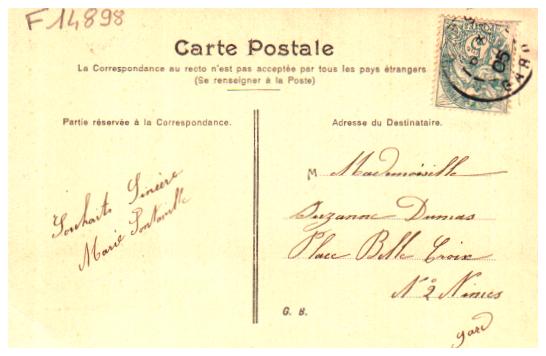 F14898
Carte Postale
La Correspondance au recto n'est pas acceptée par tous les pays étrangers
(Se renseigner à la Poste)
05
GARD
Partie réservée à la Correspondance.
Adresse du Destinataire.
Souhaits Sincère
Marie
M Mademoiselle
Suzanne Dumas
Place Belle Croix
N° 2 Nimes
gard
G. B.